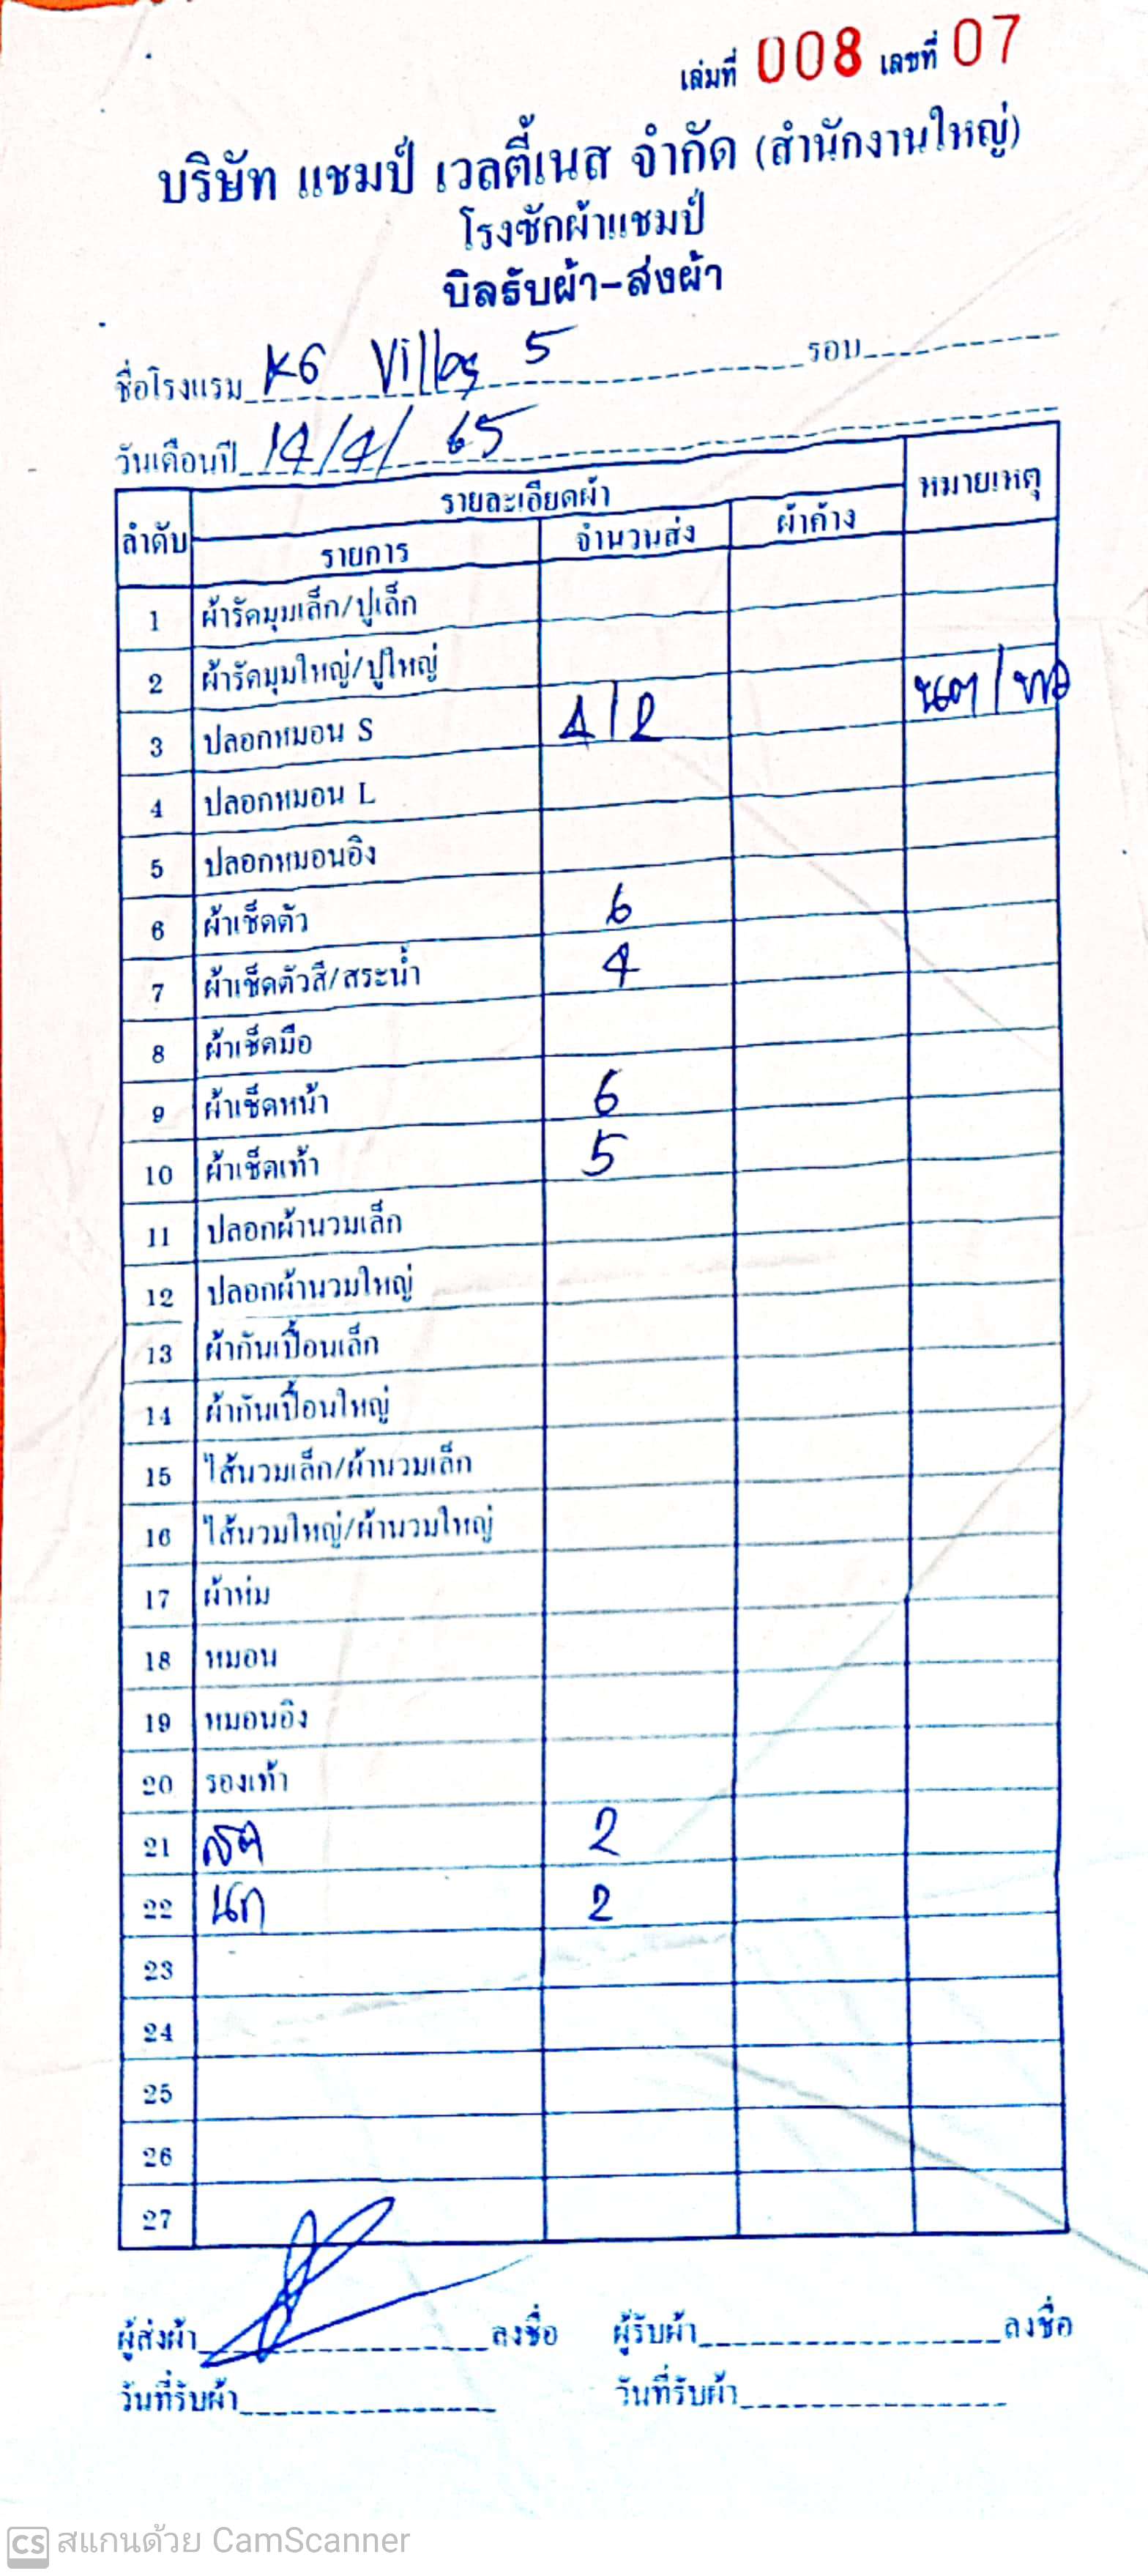 เล่มที่ 008 เลขที่ 07
บริษัท แชมป์ เวลตี้เนส จำกัด (สำนักงานใหญ่)
โรงซักผ้าแชมป์
บิลรับผ้า-ส่งผ้า
ชื่อโรงแรม K6 Villas 5 รอบ
วันเดือนปี 14/4/65
ลำดับ รายละเอียดผ้า หมายเหตุ
รายการ จำนวนส่ง ผ้าค้าง
1 ผ้ารัดมุมเล็ก/ปูเล็ก
2 ผ้ารัดมุมใหญ่/ปูใหญ่
3 ปลอกหมอน S 4/2
4 ปลอกหมอน L
5 ปลอกหมอนอิง
6 ผ้าเช็ดตัว 6
7 ผ้าเช็ดตัวสี/สระน้ำ 4
8 ผ้าเช็ดมือ
9 ผ้าเช็ดหน้า 6
10 ผ้าเช็ดเท้า 5
11 ปลอกผ้านวมเล็ก
12 ปลอกผ้านวมใหญ่
13 ผ้ากันเปื้อนเล็ก
14 ผ้ากันเปื้อนใหญ่
15 ไส้นวมเล็ก/ผ้านวมเล็ก
16 ไส้นวมใหญ่/ผ้านวมใหญ่
17 ผ้าห่ม
18 หมอน
19 หมอนอิง
20 รองเท้า
21 2
22 2
23
24
25
26
27
ผู้ส่งผ้า ลงชื่อ ผู้รับผ้า ลงชื่อ
วันที่รับผ้า วันที่รับผ้า
CS สแกนด้วย CamScanner